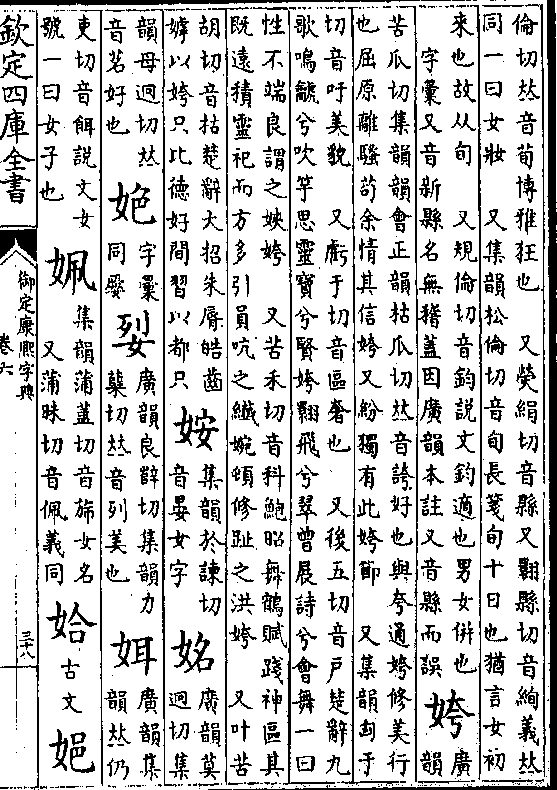 倫切𠀤音荀博雅狂也　又熒絹切音縣又翾縣切音絢義𠀤
同一曰女妝　又集韻松倫切音旬長箋旬十日也猶言女初
來也故从旬　又規倫切音鈞說文鈞適也男女倂也
字彙又音新縣名無稽蓋因廣韻本註又音縣而誤　姱　廣韻
苦瓜切集韻韻會正韻枯瓜切𠀤音誇好也與夸通姱修美行
也屈原離騷苟余情其信姱又紛獨有此姱節　又集韻匈于
切音吁美貌　又虧于切音區奢也　又後五切音戸楚辭九
歌鳴鷈兮吹竽思靈寶兮賢姱翾飛兮翠曾展詩兮會舞一曰
性不端良謂之𡜮姱　又苦禾切音科鮑昭舞鶴賦踐神區其
旣遠積靈祀而方多引員吭之纎婉頓修趾之洪姱　又叶苦
胡切音枯楚辭大招朱脣皓齒
嫭以姱只比德好閒習以都只　姲　集韻於諫切
音晏女字　姳　廣韻莫
迥切集
韻母迥切𠀤
音茗好也　娩　字彙
同嬎　姴　廣韻良辥切集韻力
櫱切𠀤音列美也　姌　廣韻集
韻𠀤仍
吏切音餌說文女
號一曰女子也　姵　集韻蒲蓋切音旆女名
又蒲昧切音佩義同　姶　古文　㛂
欽定四庫全書
御定康熙字典
卷六
三十八